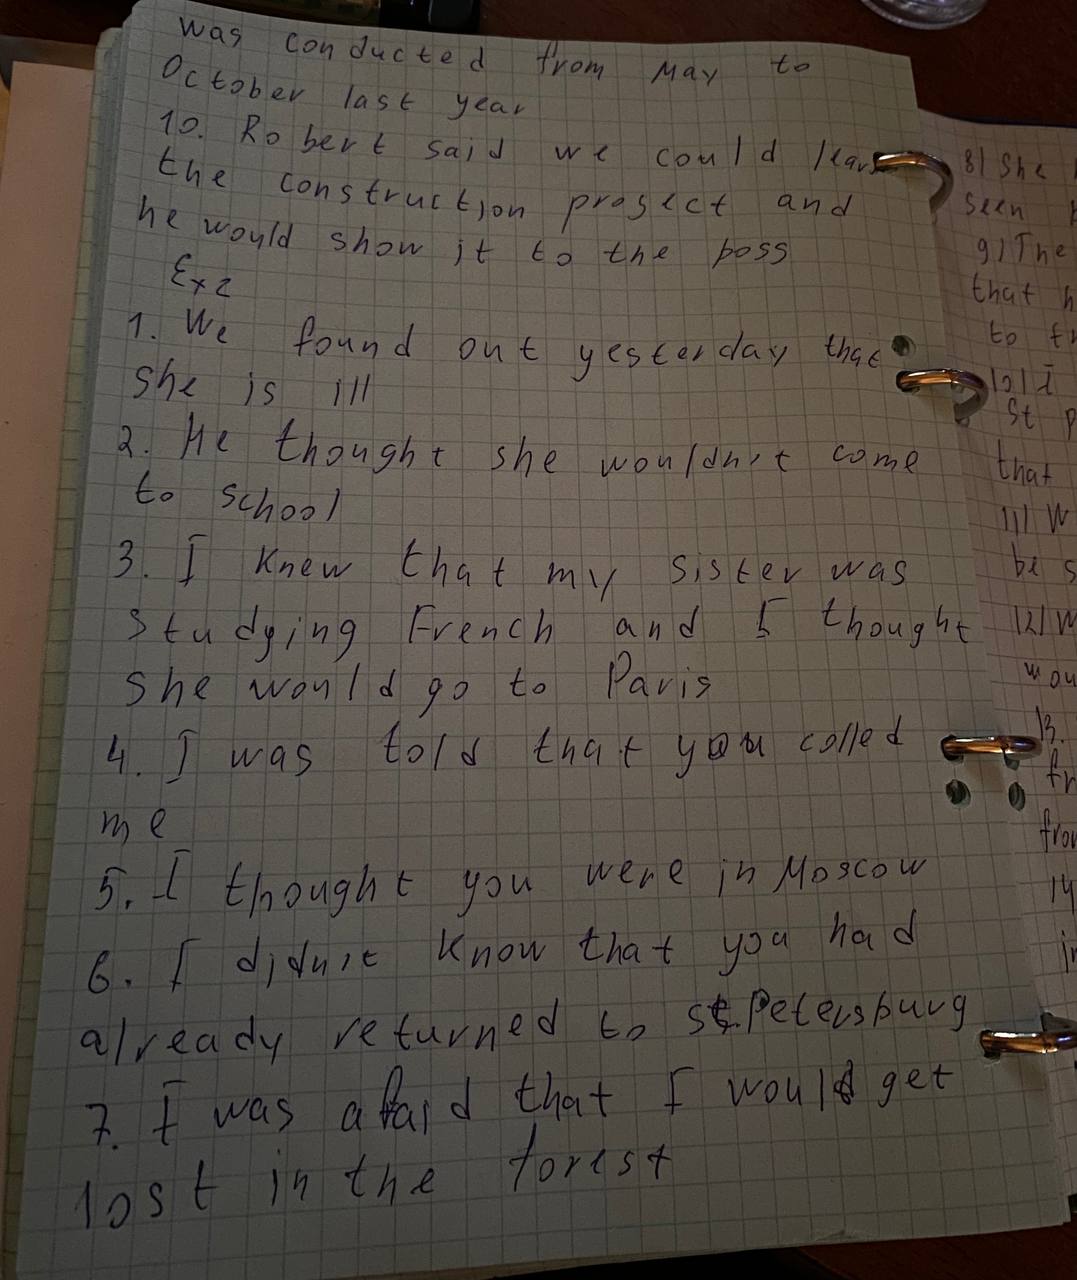 was conducted from May to
October last year
10. Robert said we could
the construction prosect and
he would show it to the boss
Ex 2
1. We found out yesterday that
she is ill
2. He thought she wouldn't come
to school
3. I knew that my sister was
studying French and I thought
she would go to Paris
4. I was told that you colled
me
5. I thought you were in Moscow
6. I didn't know that you had
already returned to st.Petersburg
7. I was afaid that I would get
lost in the forest
8) She
seen
9) The
that h
to
10) I
St p
that
11) W
be s
12)
wou
13.
fr
from
14
in